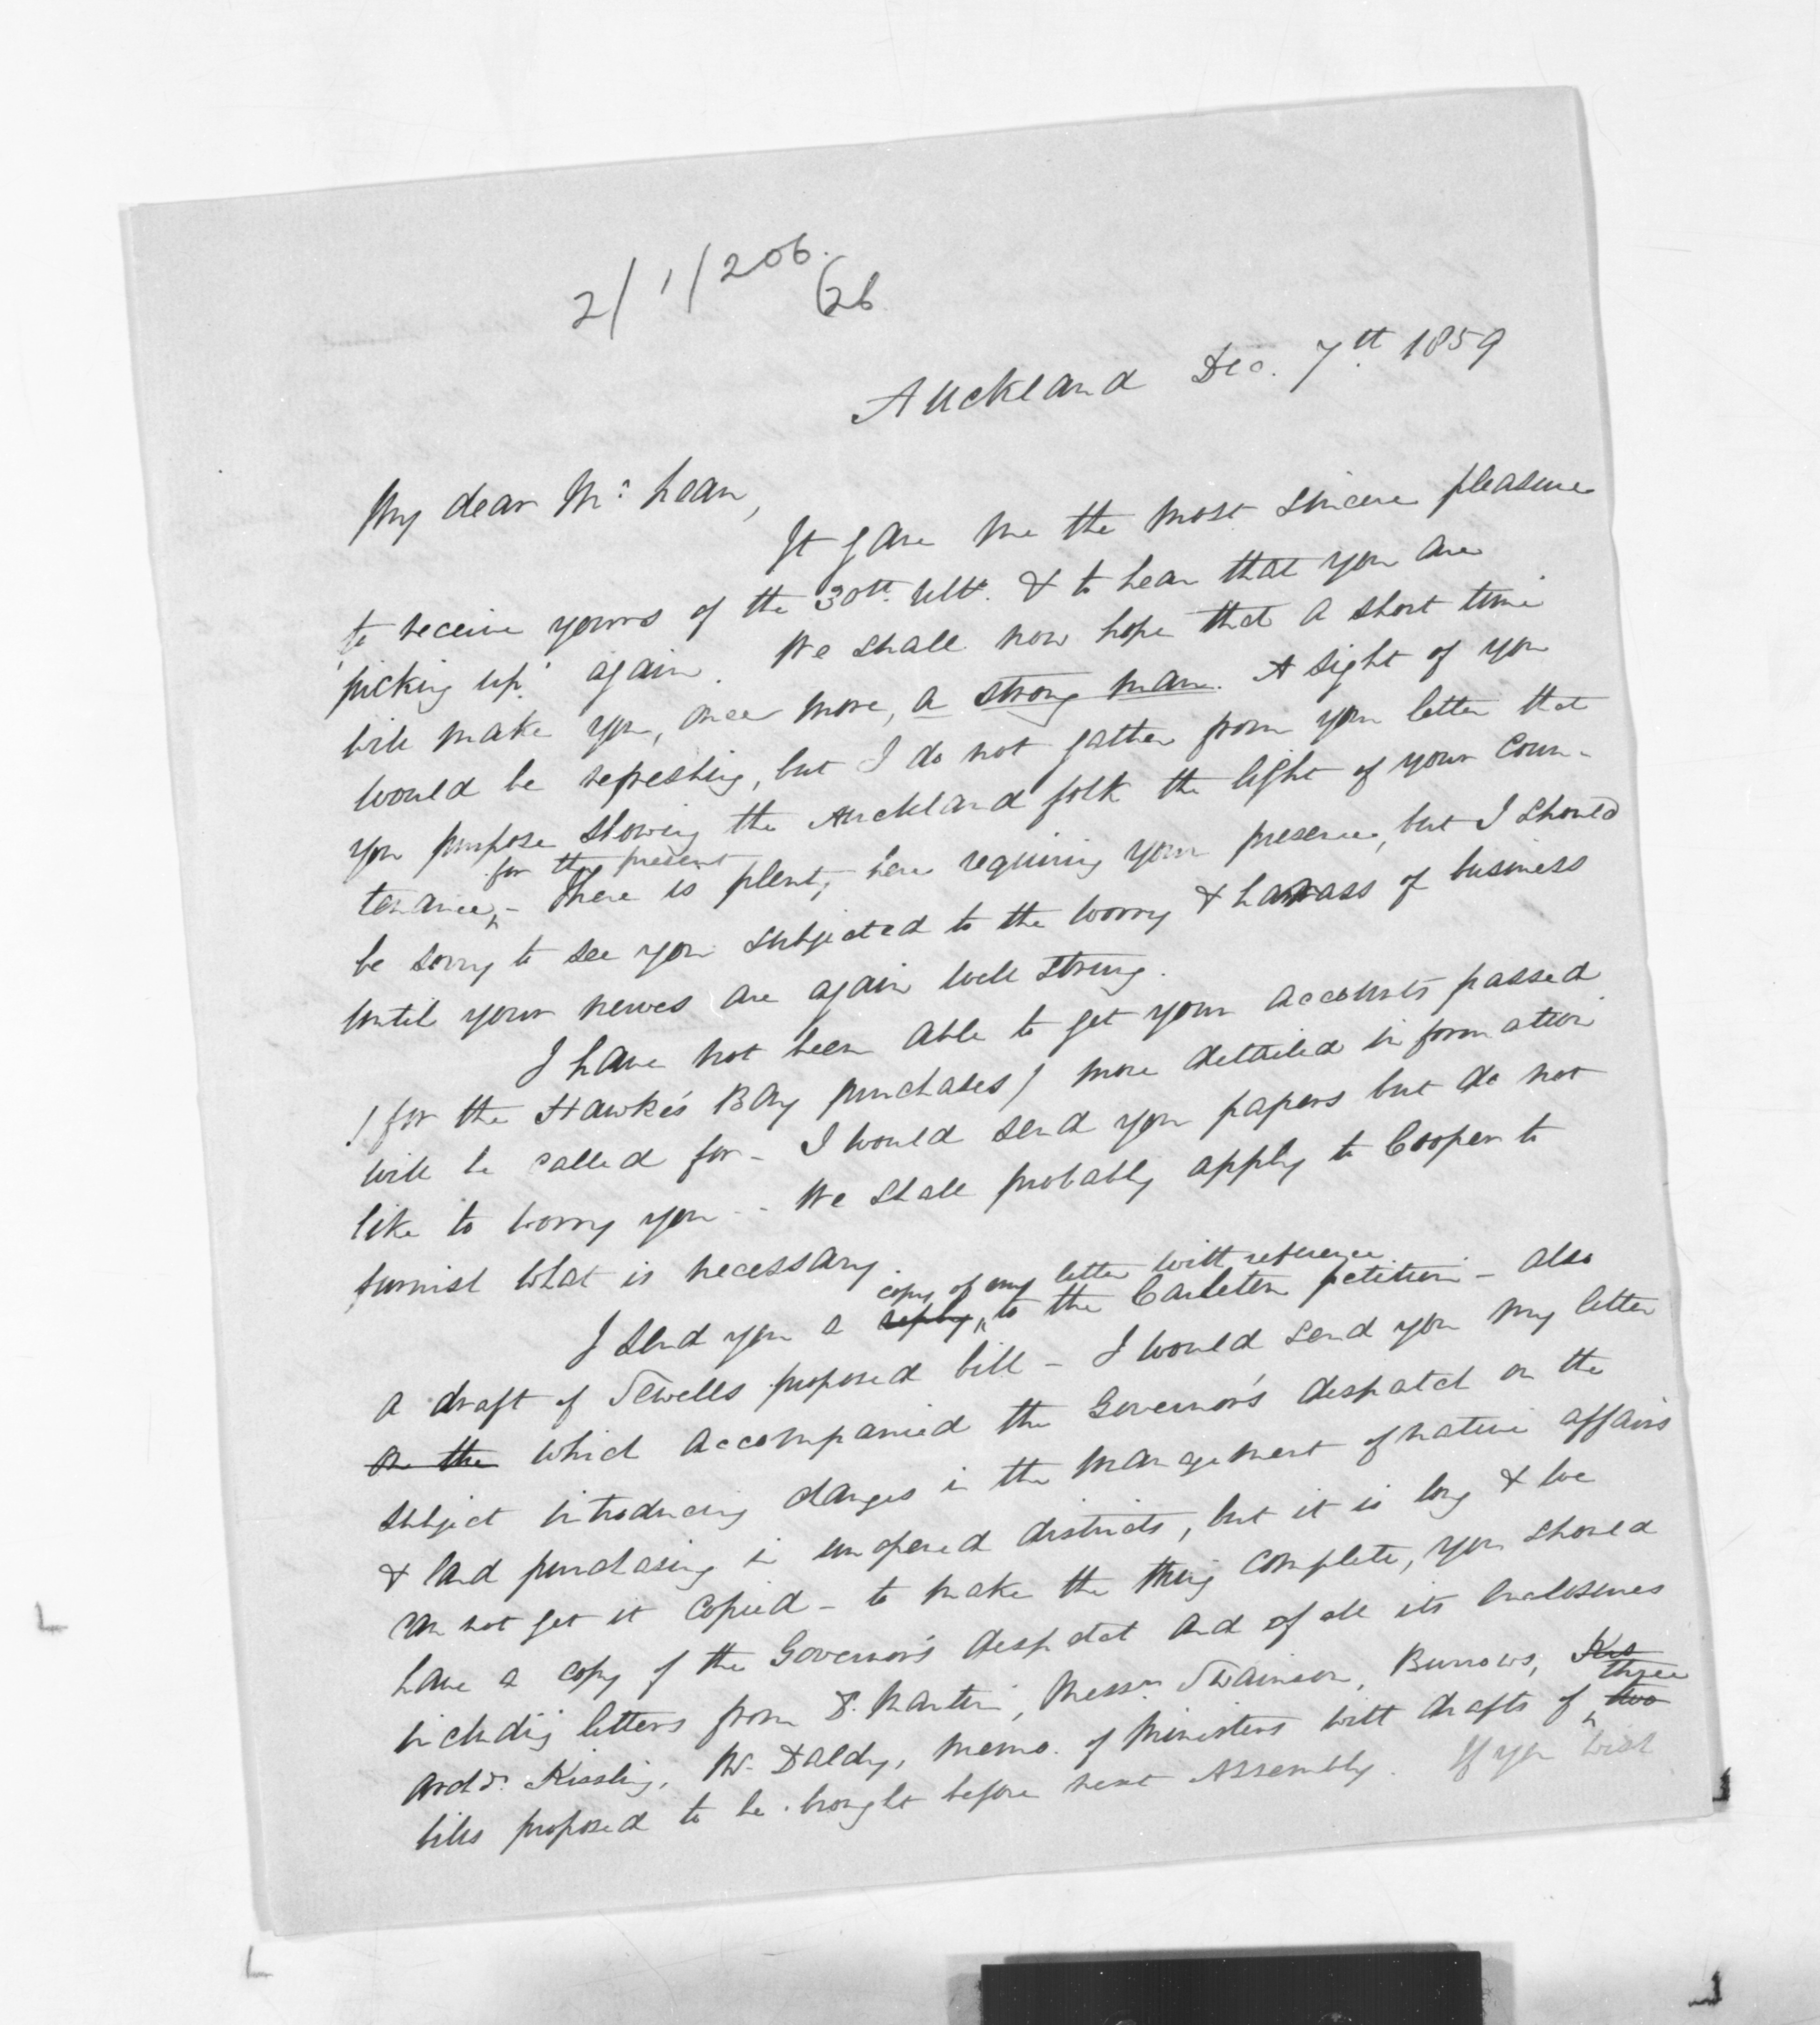 2/1/206.
(26
Auckland Dec. 7th 1859
My dear Mc Lean,
It gave me the most sincere pleasure
to receive yours of the 30th. Ult. & to hear that you are
'picking up' again. We shall now hope that a short time
will make you, once more, a strong man. A sight of you
would be refreshing, but I do not gather from your letter that
you purpose showing the Auckland folk the light of your coun-
for the present
tenance, - There is plenty here requiring your presence, but I should
be sorry to see you subjected to the worry & harrass of business
until your nerves are again well strung.
I have not been able to get your accounts passed
(for the Hawke's Bay purchases) more detailed information
will be called for - I would send you papers but do not
like to worry you - We shall probably apply to Cooper to
furnish what is necessary.
copy of my letter with reference
I send you a reply to the Carleton petition - also
a draft of Sewells proposed bill - I would send you my letter
on the which accompanied the Governor's despatch on the
subject introducing changes in the management of native affairs
& land purchasing in unopened districts, but it is long & we
can not get it copied - to make the thing complete, you should
have a copy of the Governor's despatch and of all its enclosures
including letters from Dr. Martin, Messrs Swainson, Burrows,
three
Archdn. Kissling, Mr. Daldy, memo. of Ministers with drafts of two
bills proposed to be brought before next Assembly. If you wish